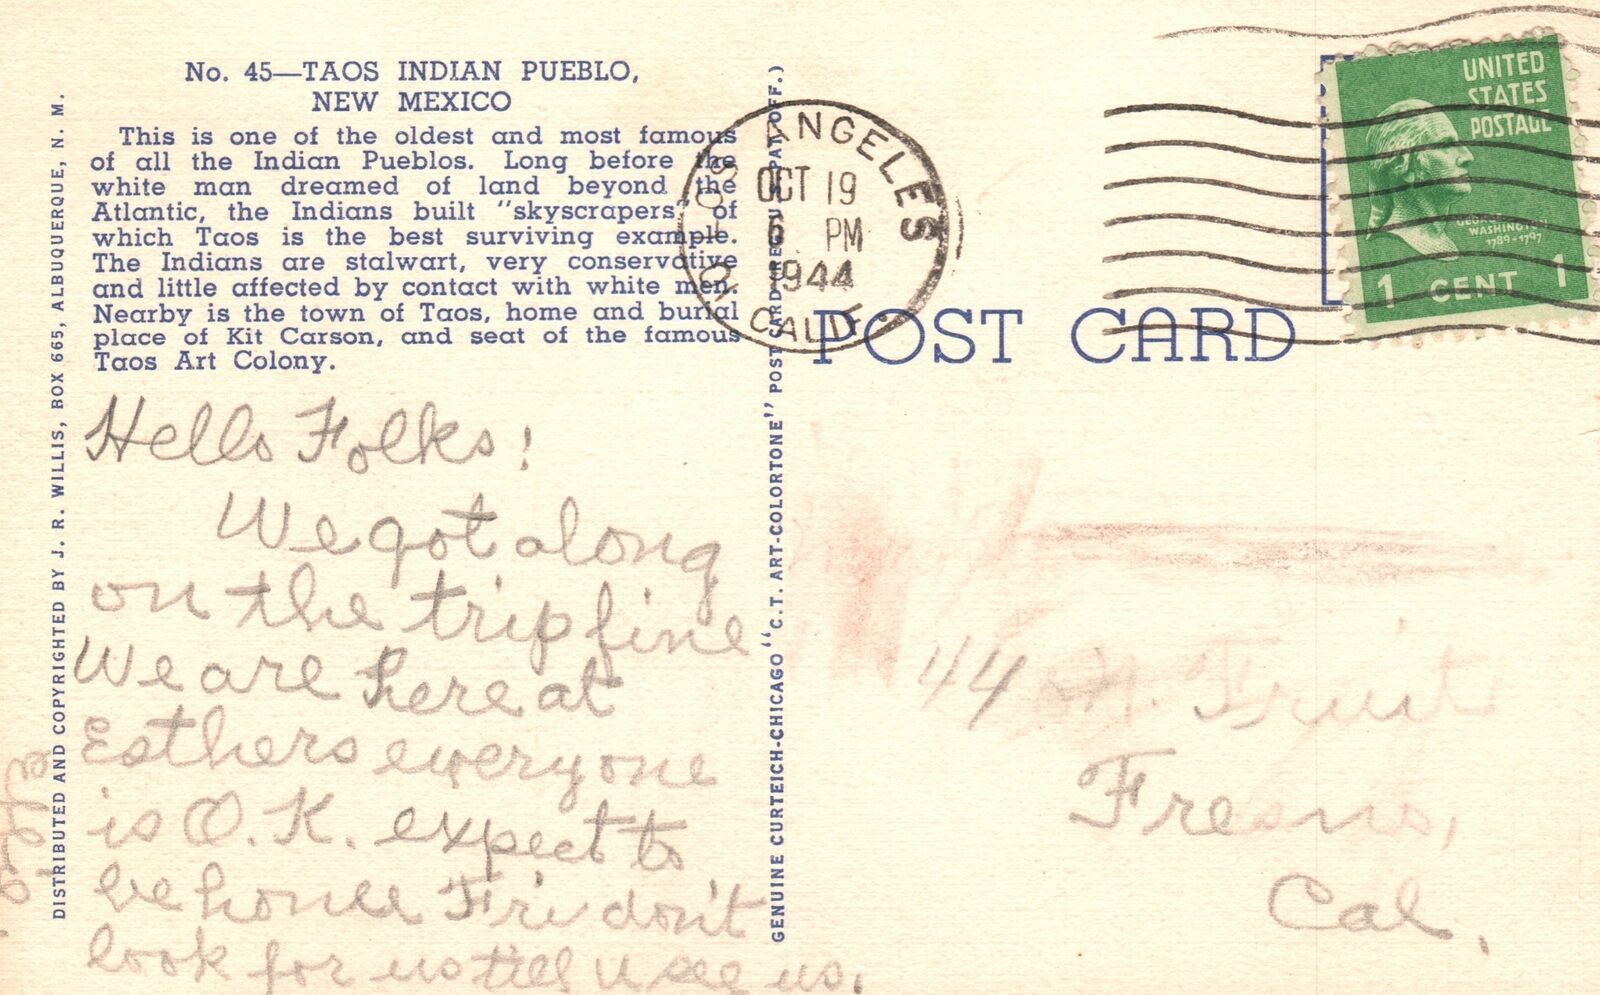 No. 45—TAOS INDIAN PUEBLO,
NEW MEXICO
This is one of the oldest and most famous
of all the Indian Pueblos. Long before the
white man dreamed of land beyond the
Atlantic, the Indians built "skyscrapers" of
which Taos is the best surviving example.
The Indians are stalwart, very conservative
and little affected by contact with white men.
Nearby is the town of Taos, home and burial
place of Kit Carson, and seat of the famous
Taos Art Colony.
DISTRIBUTED AND COPYRIGHTED BY J. R. WILLIS, BOX 665, ALBUQUERQUE, N. M.
Hello Folks!
We got along
on the trip fine
We are here at
Esthers everyone
is O.K. expect to
be home Fri don't
look for us till u see us.
GENUINE CURTEICH-CHICAGO "C.T. ART-COLORTONE" POST CARD (REG. U.S. PAT. OFF.)
LOS ANGELES
OCT 19
6 PM
1944
CALIF.
POST CARD
UNITED
STATES
POSTAGE
GEORGE
WASHINGTON
1789-1797
1 CENT 1
44 N. Fruit
Fresno,
Cal.